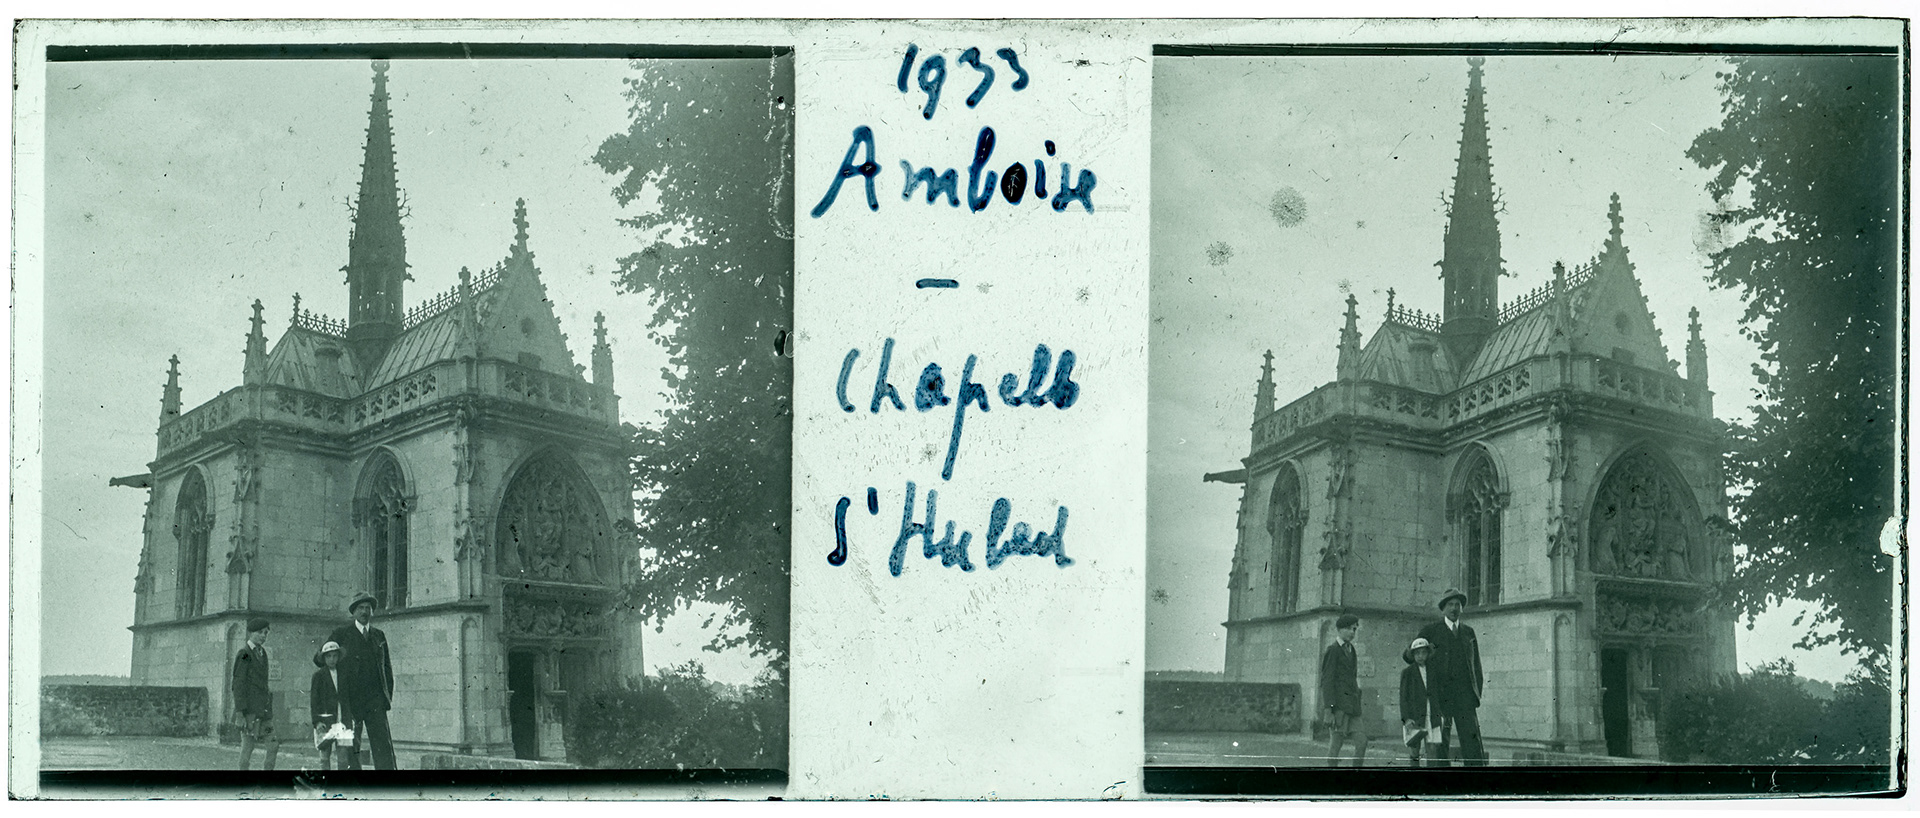 1933
Amboise
-
Chapelle
S'Hubert